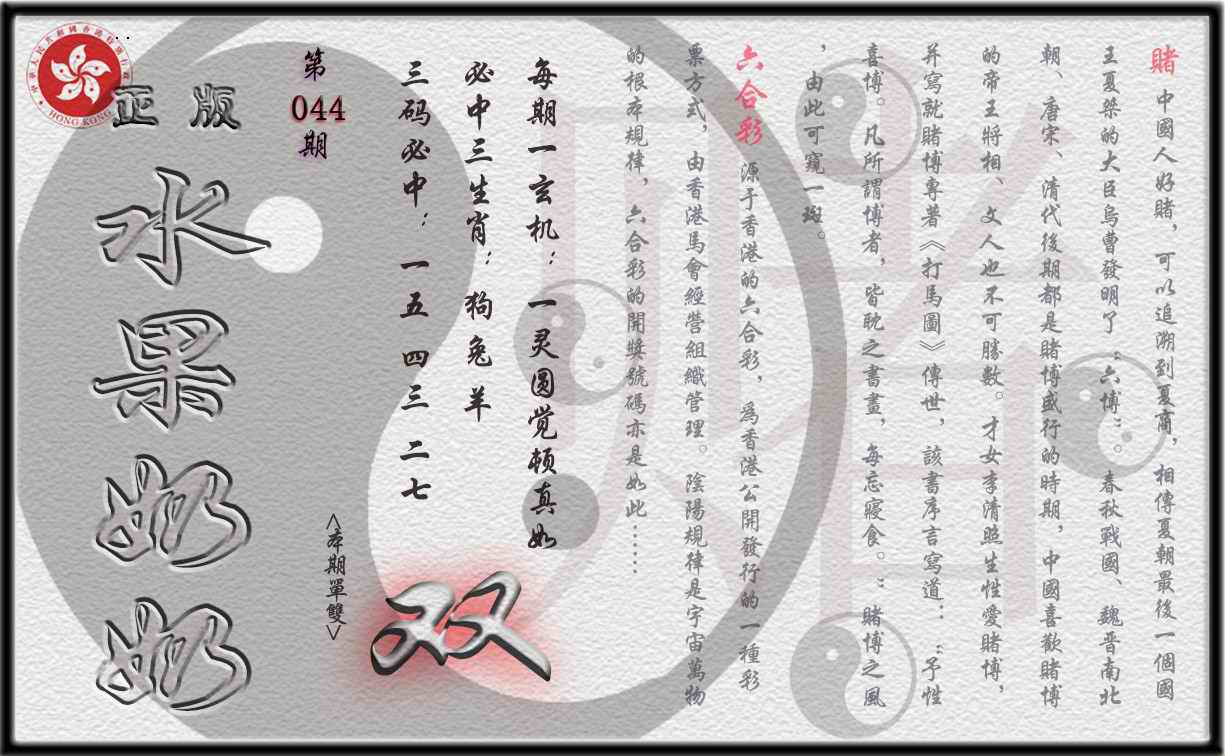 賭 中國人好賭，可以追溯到夏商，相傳夏朝最後一個國
王夏桀的大臣烏曹發明了“六博”。春秋戰國、魏晋南北
朝、唐宋、清代後期都是賭博盛行的時期，中國喜歡賭博
的帝王將相、文人也不可勝數。才女李清照生性愛賭博，
并寫就賭博專著《打馬圖》傳世，該書序言寫道：：“予性
喜博。凡所謂博者，皆耽之書畫，每忘寢食。”賭博之風
，由此可窺一斑。
六合彩 源于香港的六合彩，爲香港公開發行的一種彩
票方式，由香港馬會經營組織管理。陰陽規律是宇宙萬物
的根本規律，六合彩的開獎號碼亦是如此……
每期一玄机：一灵圆觉顿真如
必中三生肖：狗兔羊
三码必中：一五 四三 二七
双
<本期單雙>
第
044
期
正版
水果奶奶
HONG KONG